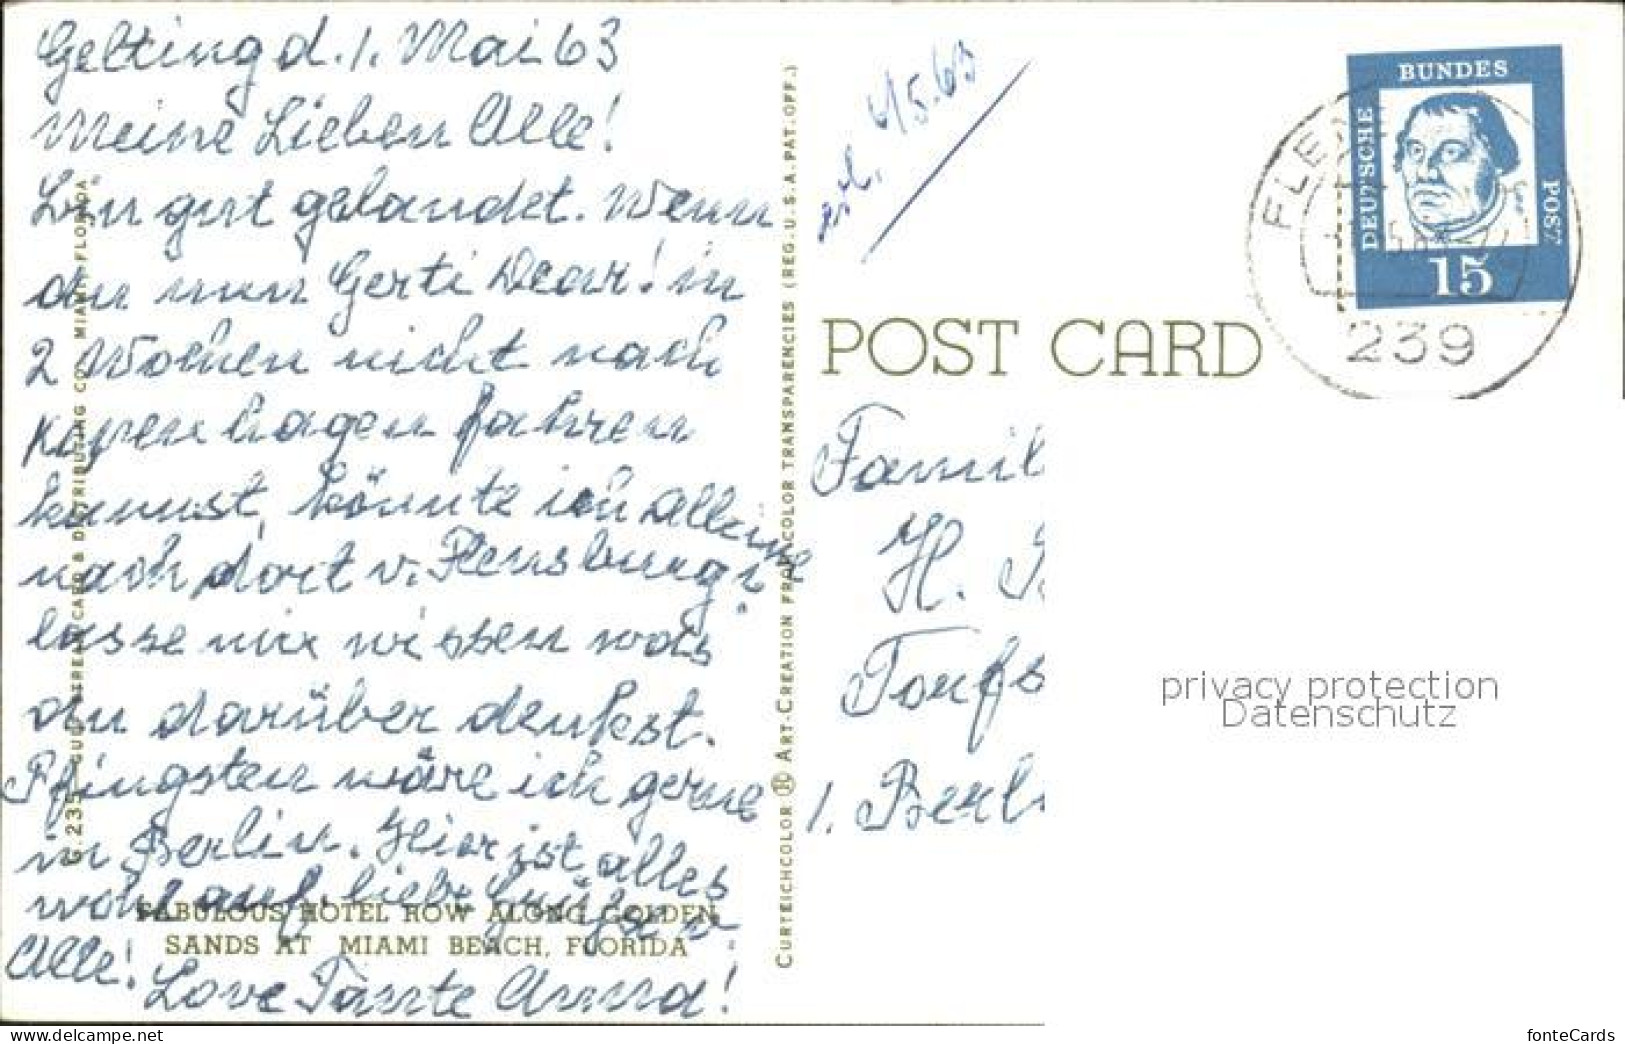 Gelting d. 1. Mai 63
Meine Lieben Alle!
Bin gut gelandet. Wenn
du nun Gerti Dear! in
2 Wochen nicht nach
Kopenhagen fahren
kannst, könnte ich alleine
nach dort v. Flensburg:
lasse mir wissen was
du darüber denkst.
Pfingsten wäre ich gerne
in Berlin. Hier ist alles
wohl auf, liebe Grüße v.
Alle!
Love Tante Anna!
FABULOUS HOTEL ROW ALONG GOLDEN
SANDS AT MIAMI BEACH, FLORIDA
G.235 GULF STREAM CARD & DISTRIBUTING CO., MIAMI, FLORIDA
CURTEICHCOLOR ® ART-CREATION FROM COLOR TRANSPARENCIES (REG. U.S.A. PAT. OFF.)
erl. 4/5.63
POST CARD
DEUTSCHE
BUNDES
POST
15
239
Famil
H.
Torfs
1. Berli
privacy protection
Datenschutz
www.delcampe.net/de
fonteCards